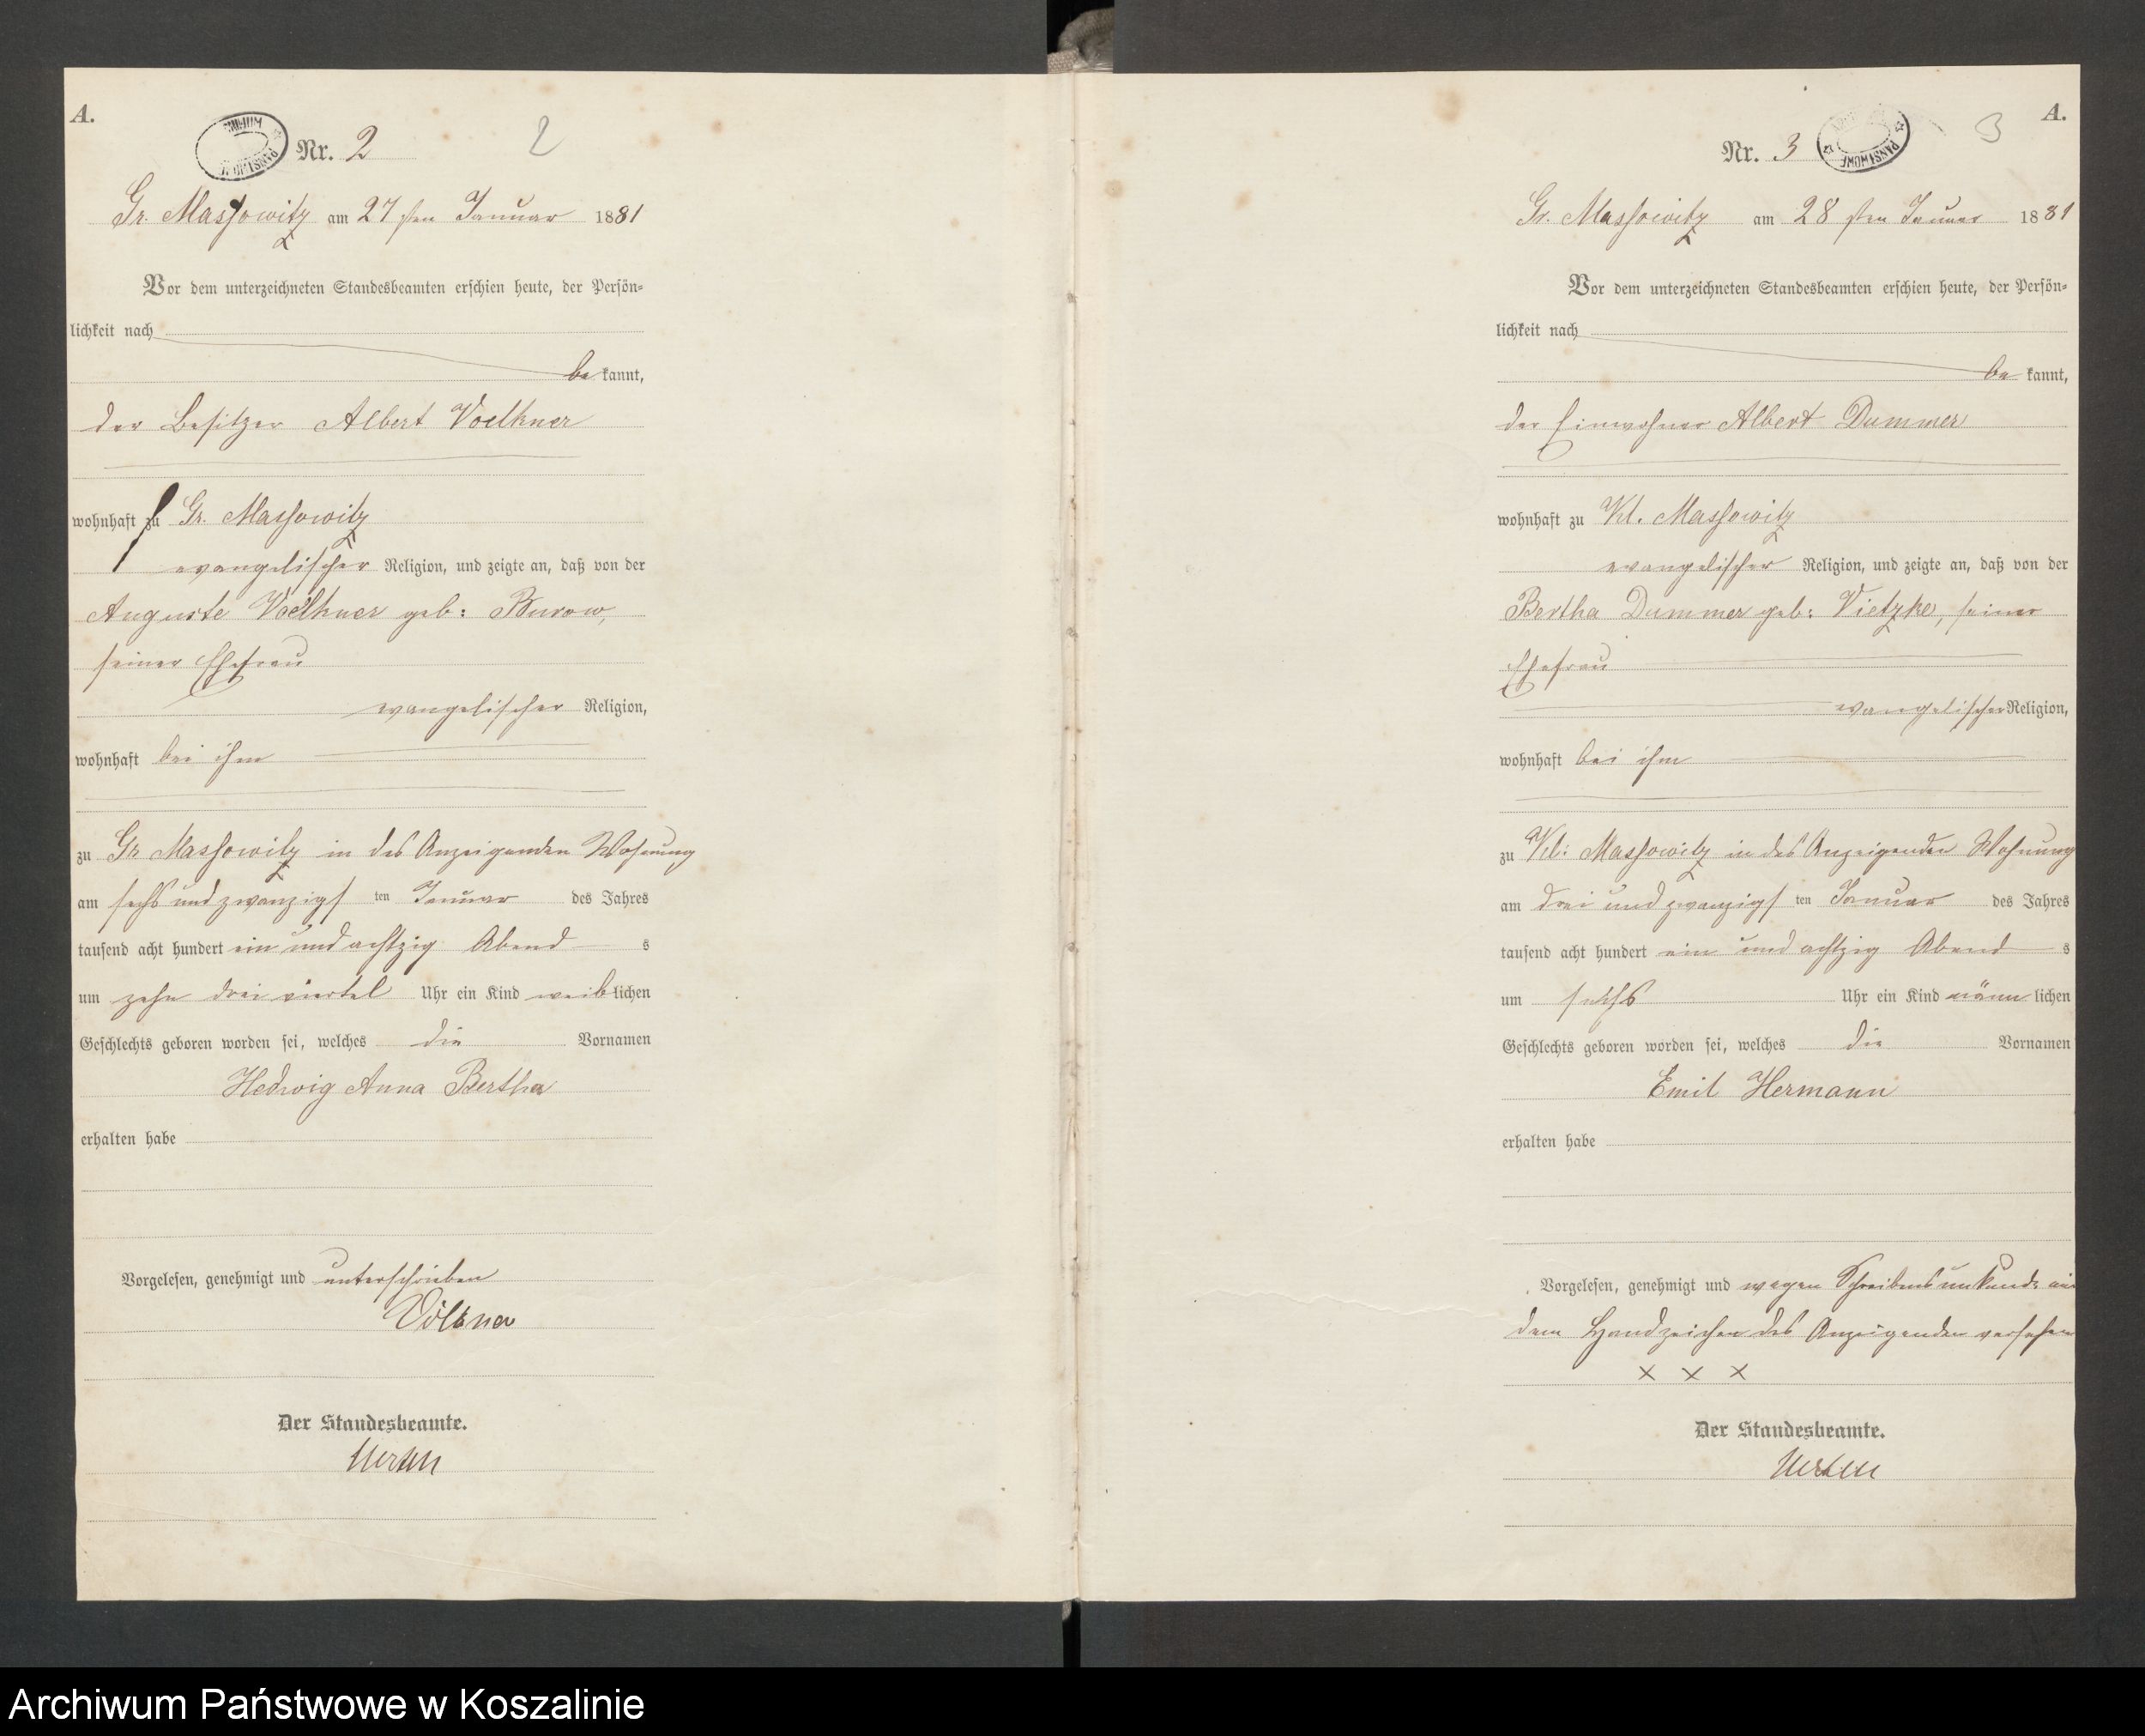 A.
Nr. 2
2
Gr. Massowitz am 27sten Januar 1881
Vor dem unterzeichneten Standesbeamten erschien heute, der Persön-
lichkeit nach
bekannt,
der Besitzer Albert Voelkner
wohnhaft zu Gr. Massowitz
evangelischer Religion, und zeigte an, daß von der
Auguste Voelkner geb: Burow,
seiner Ehefrau
evangelischer Religion,
wohnhaft bei ihm
zu Gr Massowitz in des Anzeigenden Wohnung
am sechs und zwanzigsten Januar des Jahres
tausend acht hundert ein und achtzig Abends
um zehn drei viertel Uhr ein Kind weiblichen
Geschlechts geboren worden sei, welches die Vornamen
Hedwig Anna Bertha
erhalten habe
Vorgelesen, genehmigt und unterschrieben
Völkner
Der Standesbeamte.
A.
Nr. 3
PAŃSTWOWE
3
Gr. Massowitz am 28sten Januar 1881
Vor dem unterzeichneten Standesbeamten erschien heute, der Persön-
lichkeit nach
bekannt,
der Einwohner Albert Dummer
wohnhaft zu Kl. Massowitz
evangelischer Religion, und zeigte an, daß von der
Bertha Dummer geb: Vietzke, seiner
Ehefrau
evangelischer Religion,
wohnhaft bei ihm
zu Kl: Massowitz in des Anzeigenden Wohnung
am drei und zwanzigsten Januar des Jahres
tausend acht hundert ein und achtzig Abends
um sechs Uhr ein Kind männlichen
Geschlechts geboren worden sei, welches die Vornamen
Emil Hermann
erhalten habe
Vorgelesen, genehmigt und wegen Schreibensunkunde mit
dem Handzeichen des Anzeigenden versehen
x x x
Der Standesbeamte.
Archiwum Państwowe w Koszalinie